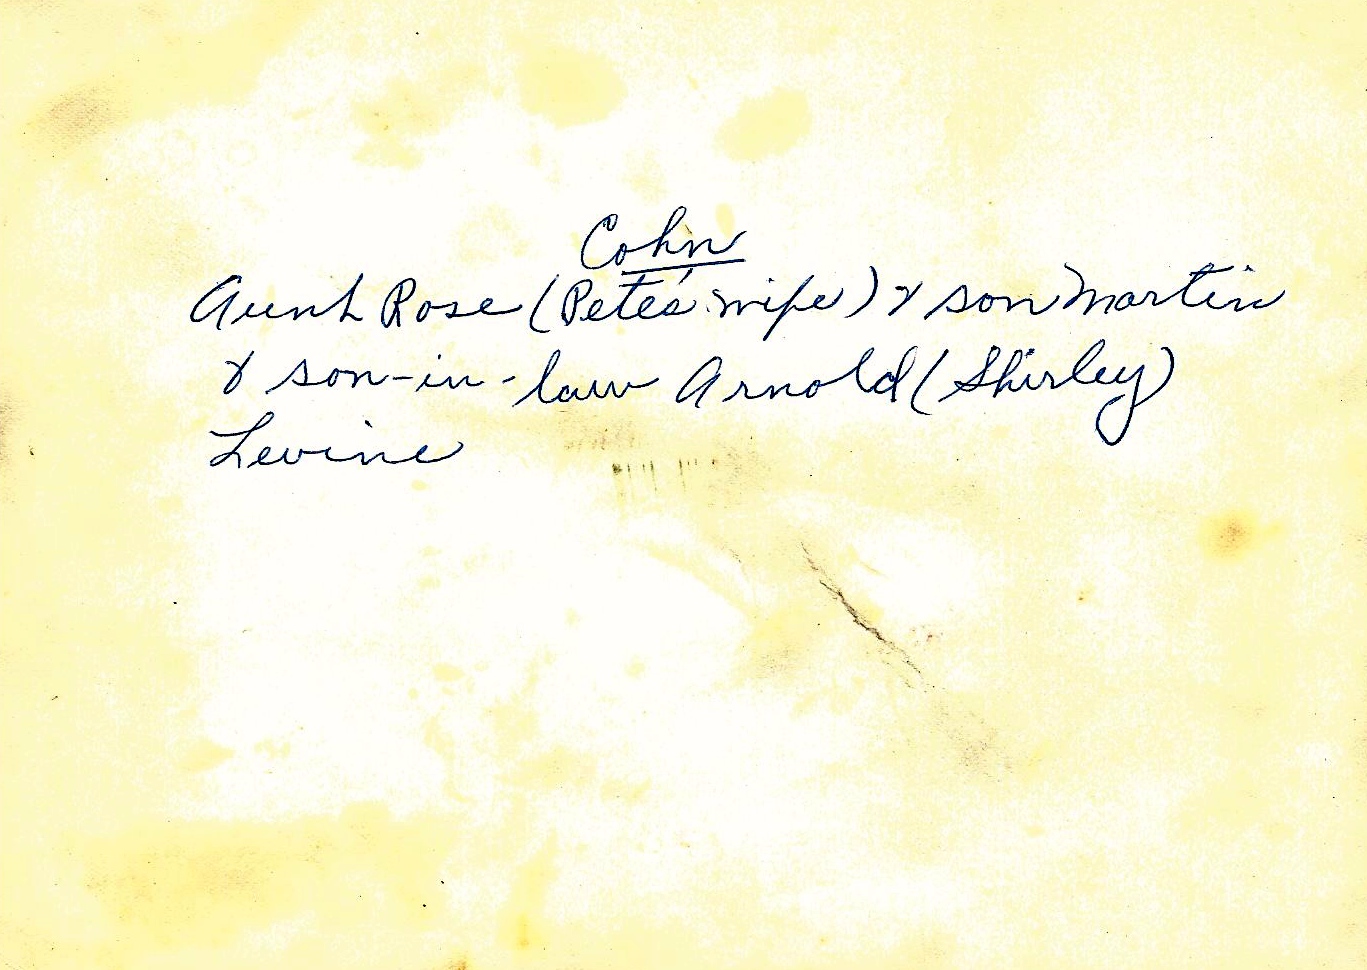 Cohn
Aunt Rose (Pete's wife) & son Martin
& son-in-law Arnold (Shirley)
Levine